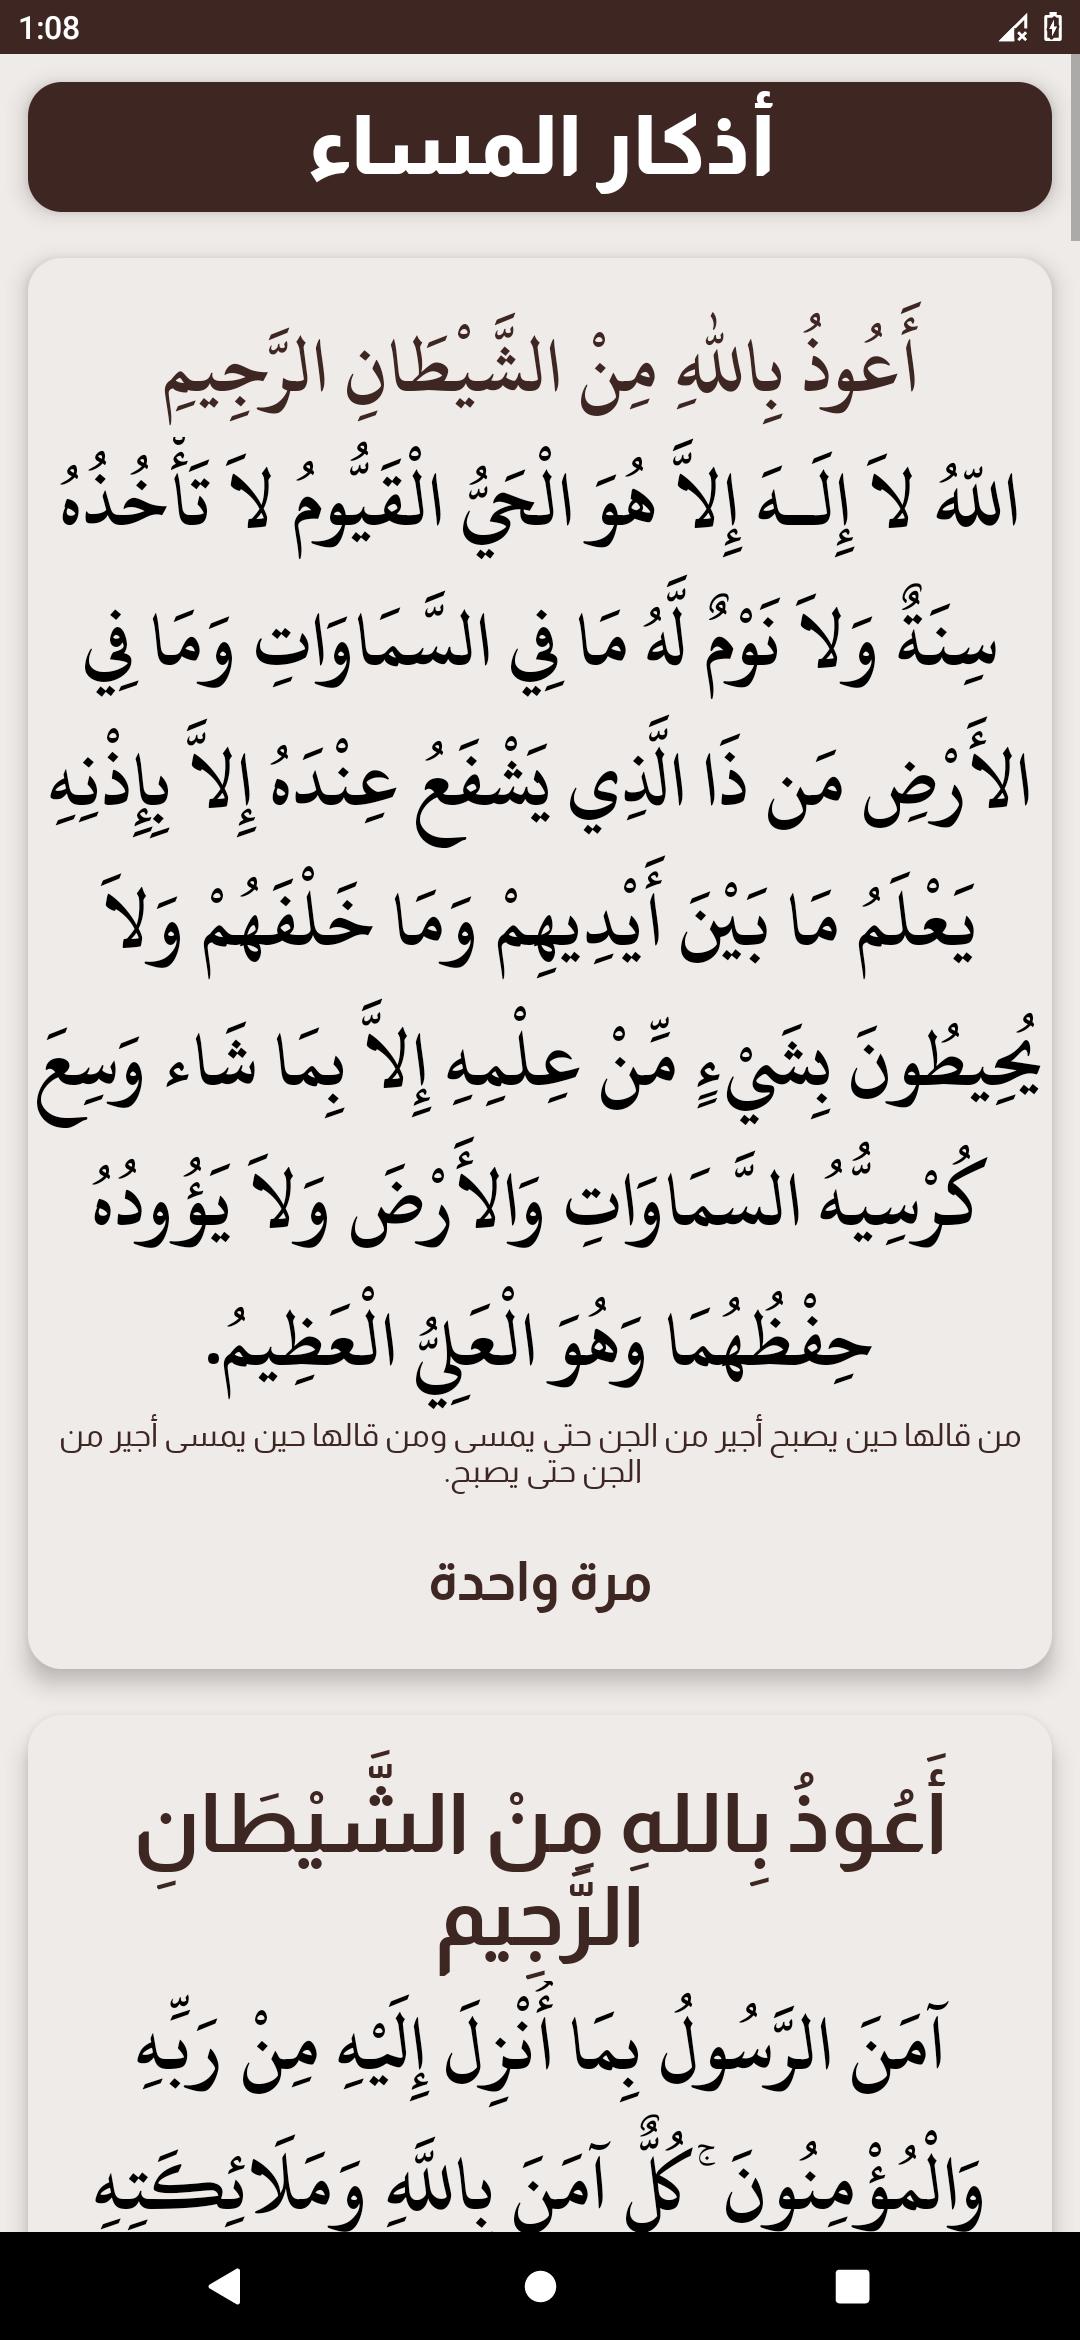 1:08
أذكار المساء
أَعُوذُ بِاللهِ مِنْ الشَّيْطَانِ الرَّجِيمِ
اللّهُ لاَ إِلَـهَ إِلاَّ هُوَ الْحَيُّ الْقَيُّومُ لاَ تَأْخُذُهُ
سِنَةٌ وَلاَ نَوْمٌ لَّهُ مَا فِي السَّمَاوَاتِ وَمَا فِي
الأَرْضِ مَن ذَا الَّذِي يَشْفَعُ عِنْدَهُ إِلاَّ بِإِذْنِهِ
يَعْلَمُ مَا بَيْنَ أَيْدِيهِمْ وَمَا خَلْفَهُمْ وَلاَ
يُحِيطُونَ بِشَيْءٍ مِّنْ عِلْمِهِ إِلاَّ بِمَا شَاء وَسِعَ
كُرْسِيُّهُ السَّمَاوَاتِ وَالأَرْضَ وَلاَ يَؤُودُهُ
حِفْظُهُمَا وَهُوَ الْعَلِيُّ الْعَظِيمُ.
من قالها حين يصبح أجير من الجن حتى يمسى ومن قالها حين يمسى أجير من
الجن حتى يصبح.
مرة واحدة
أَعُوذُ بِاللهِ مِنْ الشَّيْطَانِ
الرَّجِيم
آمَنَ الرَّسُولُ بِمَا أُنْزِلَ إِلَيْهِ مِنْ رَبِّهِ
وَالْمُؤْمِنُونَ ۚ كُلٌّ آمَنَ بِاللَّهِ وَمَلَائِكَتِهِ